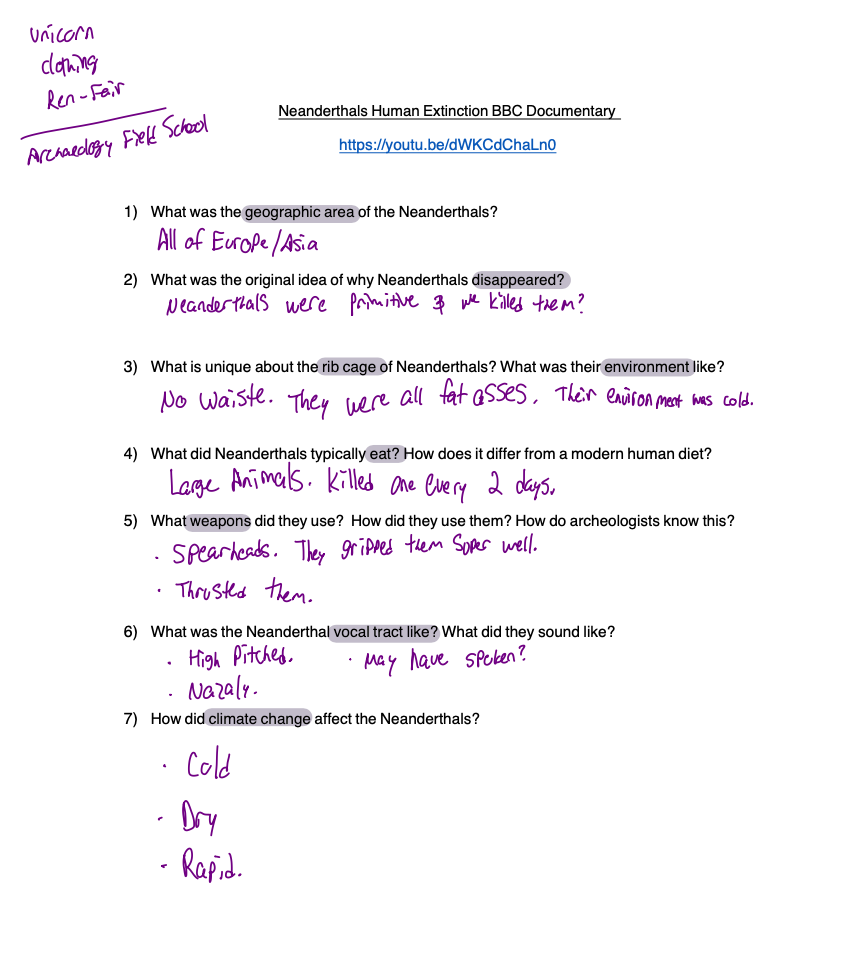 Unicorn
clothing
Ren-Fair
Archaeology Field School
Neanderthals Human Extinction BBC Documentary
https://youtu.be/dWKCdChaLn0
1) What was the geographic area of the Neanderthals?
All of Europe/Asia
2) What was the original idea of why Neanderthals disappeared?
Neanderthals were primitive & we killed them?
3) What is unique about the rib cage of Neanderthals? What was their environment like?
No waiste. They were all fat asses. Their environment was cold.
4) What did Neanderthals typically eat? How does it differ from a modern human diet?
Large Animals. Killed one every 2 days.
5) What weapons did they use? How did they use them? How do archeologists know this?
· Spearheads. They gripped them super well.
· Thrusted them.
6) What was the Neanderthal vocal tract like? What did they sound like?
· High Pitched. · May have spoken?
· Nazaly.
7) How did climate change affect the Neanderthals?
· Cold
· Dry
- Rapid.